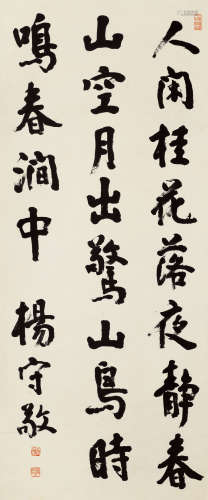 人閑桂花落夜靜春
山空月出驚山鳥時
鳴春澗中 楊守敬